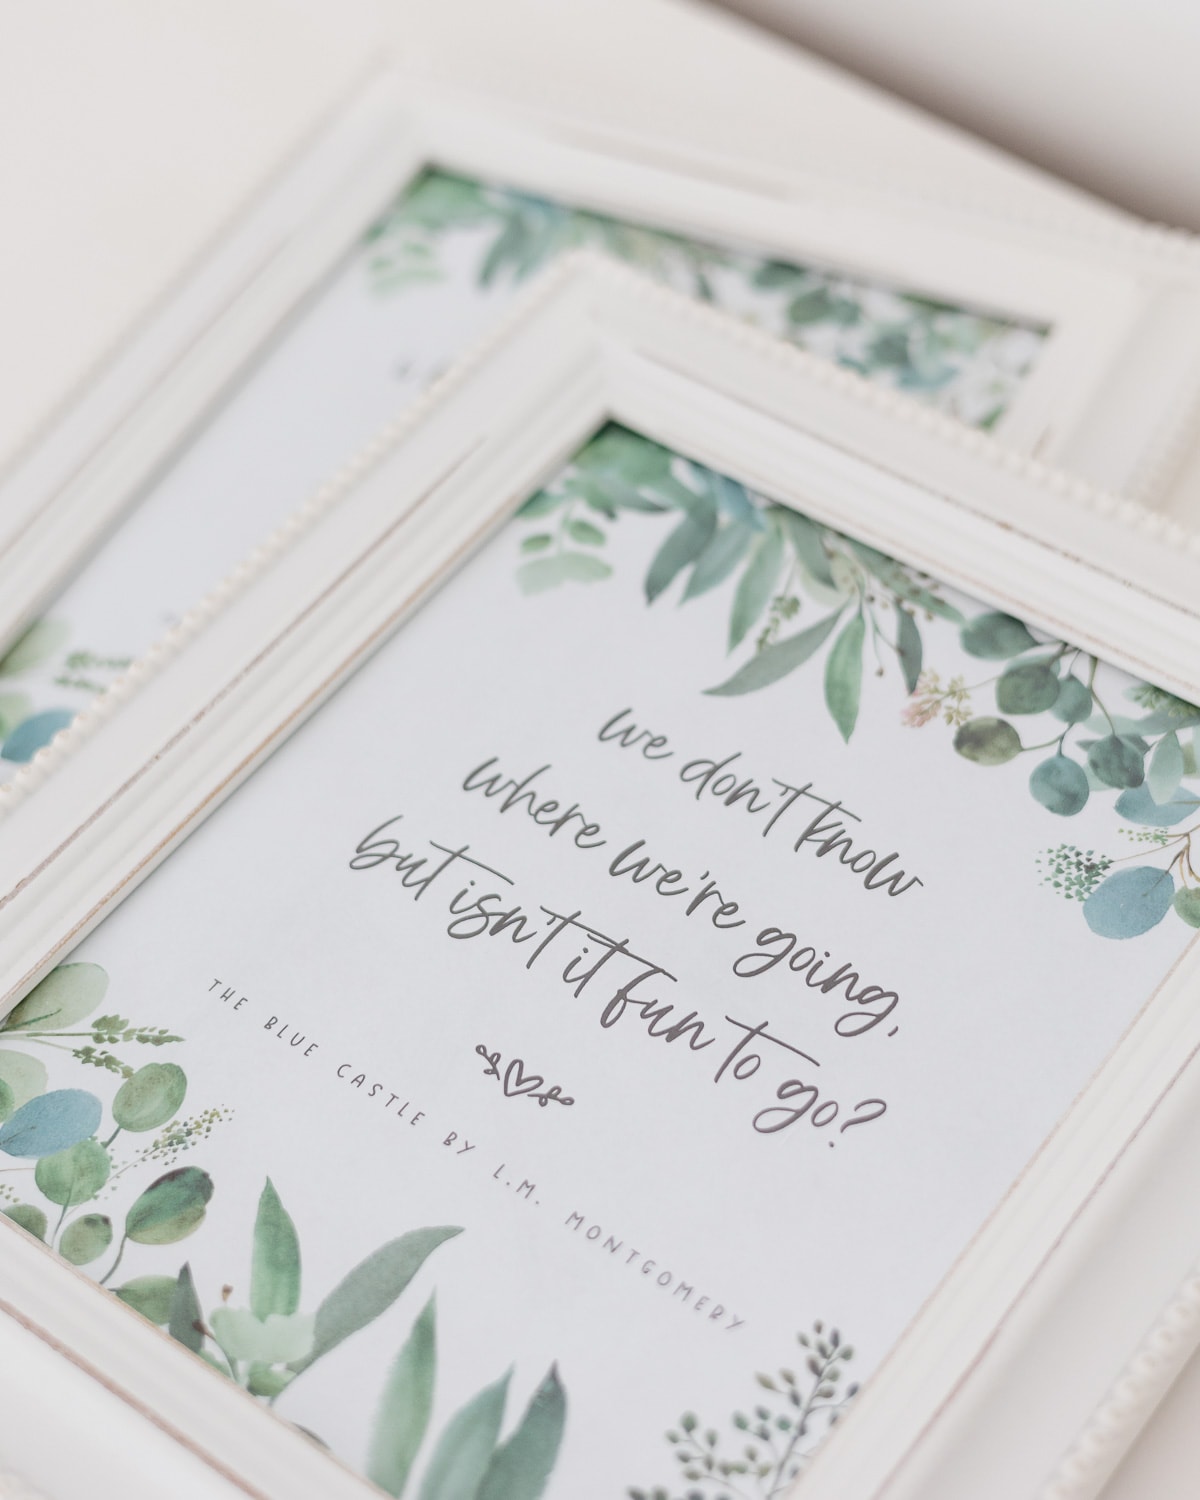 we don't know
where we're going,
but isn't it fun to go?
THE BLUE CASTLE BY L.M. MONTGOMERY